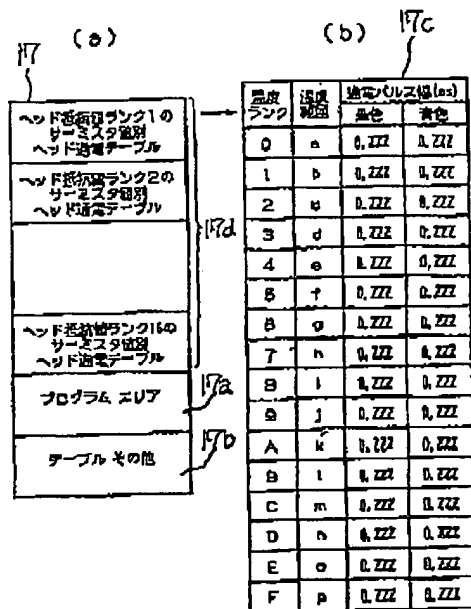 (a)
17
ヘッド抵抗値ランク1の
サーミスタ値別
ヘッド通電テーブル
ヘッド抵抗値ランク2の
サーミスタ値別
ヘッド通電テーブル
ヘッド抵抗値ランク16の
サーミスタ値別
ヘッド通電テーブル
17d
プログラム エリア
17a
テーブル その他
17b
(b)
17c
温度
ランク
温度
範囲
通電パルス幅(ms)
黒色
青色
0 a 0.ZZZ 0.ZZZ
1 b 0.ZZZ 0.ZZZ
2 0.ZZZ 0.ZZZ
3 d 0.ZZZ 0.ZZZ
4 e 0.ZZZ 0.ZZZ
5 f 0.ZZZ 0.ZZZ
6 g 0.ZZZ 0.ZZZ
7 h 0.ZZZ 0.ZZZ
8 i 0.ZZZ 0.ZZZ
9 j 0.ZZZ 0.ZZZ
A k 0.ZZZ 0.ZZZ
B l 0.ZZZ 0.ZZZ
C m 0.ZZZ 0.ZZZ
D n 0.ZZZ 0.ZZZ
E o 0.ZZZ 0.ZZZ
F p 0.ZZZ 0.ZZZ